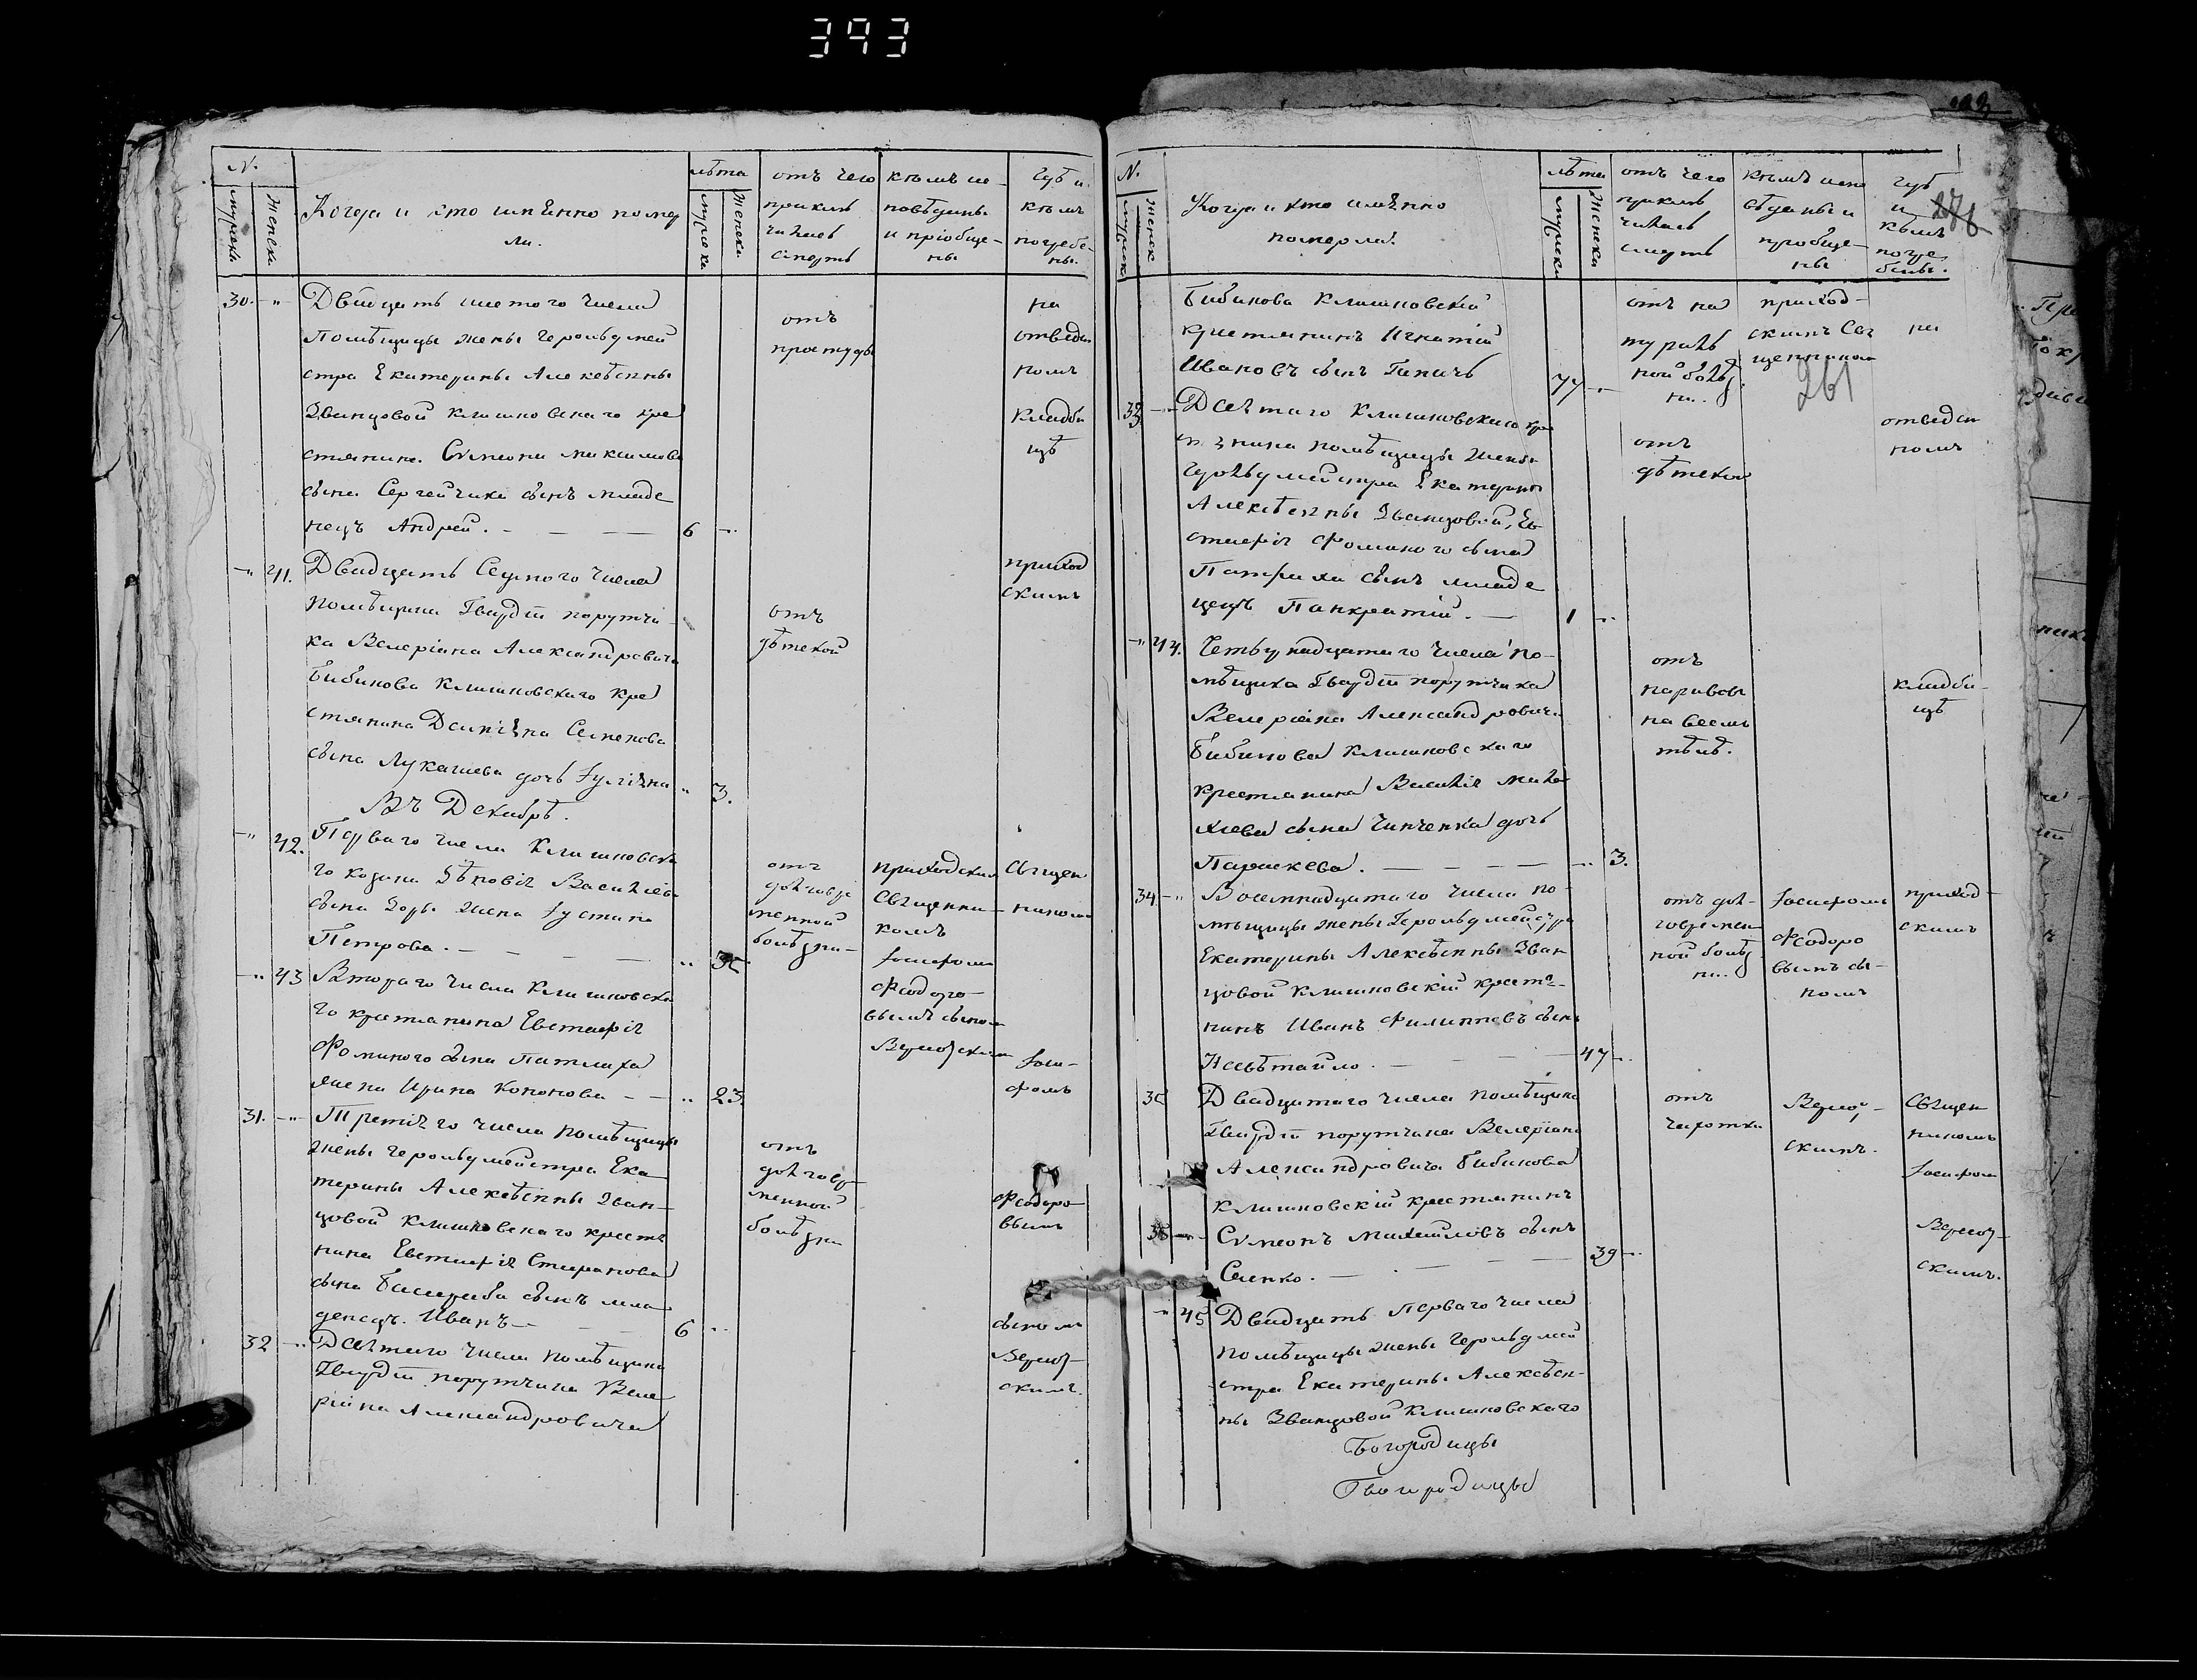 393
N.
мужеска
женска
Когда и кто имянно помер
ли.
лѣта
мужеска
женска
отъ чего
приклю
чилась
смерть
кѣмъ ис-
повѣданы
и пріобще-
ны
Гдѣ и
кѣмъ
погребе-
ны.
30. -"-
Двадцать шестого числа
Помѣщицы жены герольдмей
стра Екатерины Алексѣевны
Званцовой Клишковскаго кре
стянина Сѵмеона Максимова
сына Сергейчика сынъ младе
нецъ Андрей. - - -
6 -"-
отъ
простуды
на
отведен
номъ
кладби
щѣ
-" 41.
Двадцать Седмого числа
Помѣщика Гвардіи порутчи-
ка Валеріана Александровича
Бибикова Клишковского кре
стянина Данііла Семенова
сына Лукашева дочь Іуліяна
" 3.
отъ
дѣтской
приход
скимъ
Въ Декабрѣ.
-" 42.
Перваго числа Клишковска
го козака Зѣновія Василіева
сына Зоры жена Іустина
Петрова. - - - -
отъ
долговре
менной
болѣзни
приходским
Священни-
комъ
Іосифом
Феодоро-
вымъ сыном
Священ
ником
-" 43
Втораго числа Клишковска
го крестянина Евстафія
Фоминого сына
жена Ирина Кононова - -
" 23.
Іоси-
фомъ
31. -"-
Третяго числа помѣщицы
жены герольдмейстра Ека
терины Алексѣевны Зван-
цовой Клишковскаго крестя
нина Евстафія Стефанова
сына сынъ мла
денецъ Иванъ - -
6 -"-
отъ
долговре
менной
болѣзни
Феодоро-
вымъ
32 -"-
Десятого числа помѣщика
Гвардіи порутчика Вале
ріана Александровича
сыномъ
скимъ.
N.
мужеска
женск
Когда и кто имянно
померли.
лѣта
мужеска
женска
отъ чего
приклю
чилась
смерть
кѣмъ испо
вѣданы и
пріобще-
ны
Гдѣ
и
кѣмъ
погре
бены.
276
261
Бибикова Клишковскій
крестянинъ Игнатій
Ивановъ сынъ
77 -"-
отъ на
тураль
ной болѣз
ни.
приход-
скимъ Свя
щенником
на
33 -"-
Десятаго Клишковскаго кре
стянина помѣщицы жены
герольдмейстра Екатерины
Алексѣевны Званцовой, Ев
стафія Фоминого сына
сынъ младе
нецъ Панкратій. -
1 -"-
отъ
дѣтской
отведен
номъ
-" 44.
Четырнадцатаго числа по-
мѣщика Гвардіи порутчика
Валеріана Александровича
Бибикова Клишковскаго
крестянина Василія Миха
илова сына Чипченка дочь
Параскева. - - - -
-" 3.
отъ
наривовъ
на всемъ
тѣлѣ.
кладби-
щѣ
34 -"-
Восемнадцатаго числа по-
мѣщицы жены Герольдмейстра
Екатерины Алексѣевны Зван
цовой Клишковскій крестя-
нинъ Иванъ Филиповъ сынъ
Несвѣтайло. - - - -
47 -"-
отъ дол-
говремен
ной болѣз
ни.
Іосифомъ
Феодоро
вымъ сы-
номъ
приход-
скимъ
35
Двадцатаго числа помѣщика
Гвардіи порутчика Валеріана
Александровича Бибикова
Клишковскій крестянинъ
Сѵмеонъ Михаиловъ сынъ
Сенко. - - - -
39 -"-
отъ
чахотки
скимъ.
Священ
никомъ
Іосифом
скимъ.
-" 45
Двадцать Перваго числа
помѣщицы жены герольдмей
стра Екатерины Алексѣев-
ны Званцовой Клишковскаго
Богородицы
Богородицы